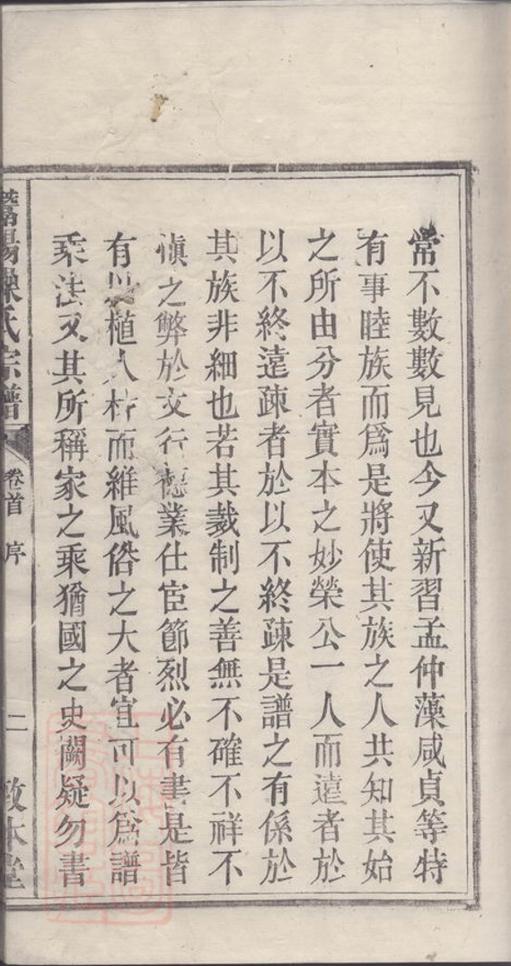 常不數數見也今又新習孟仲藻咸貞等特
有事睦族而爲是將使其族之人共知其始
之所由分者實本之妙榮公一人而遠者於
以不終遠疎者於以不終疎是譜之有係於
其族非細也若其裁制之善無不確不祥不
慎之弊於文行德業仕宦節烈必有書是皆
有以植人材而維風俗之大者宜可以爲譜
乘法又其所稱家之乘猶國之史闕疑勿書
陽操氏宗譜
卷首 序
二
敦本堂